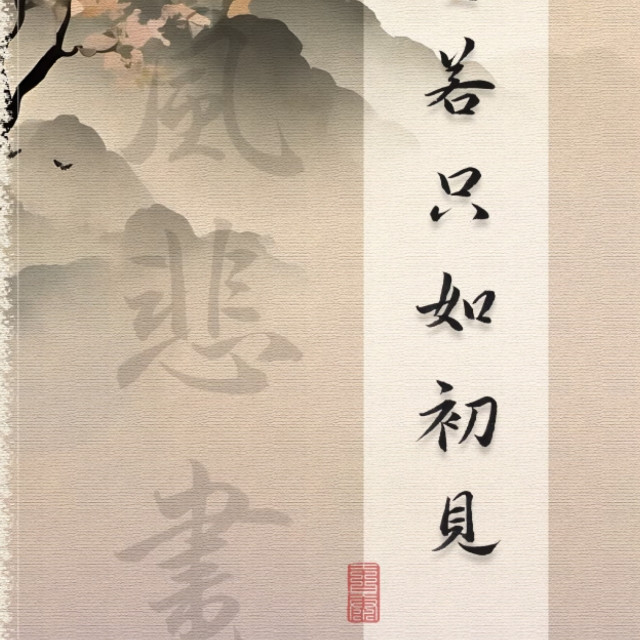 若只如初見
風悲畫